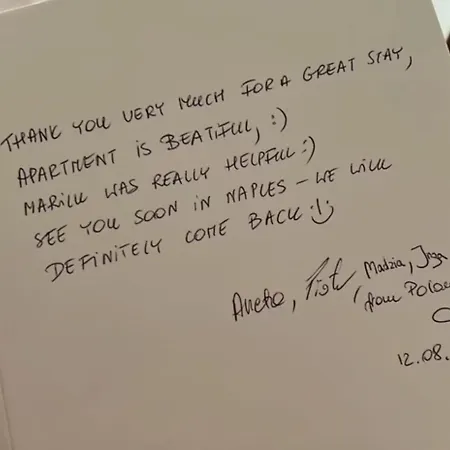 THANK YOU VERY MUCH FOR A GREAT STAY,
APARTMENT IS BEATIFUL, :)
MARIUK WAS REALLY HELPFUL :)
SEE YOU SOON IN NAPLES – WE WILL
DEFINITELY COME BACK :)
Aneta, Piotr, Madzia, Jaga
from Pola
12.08.